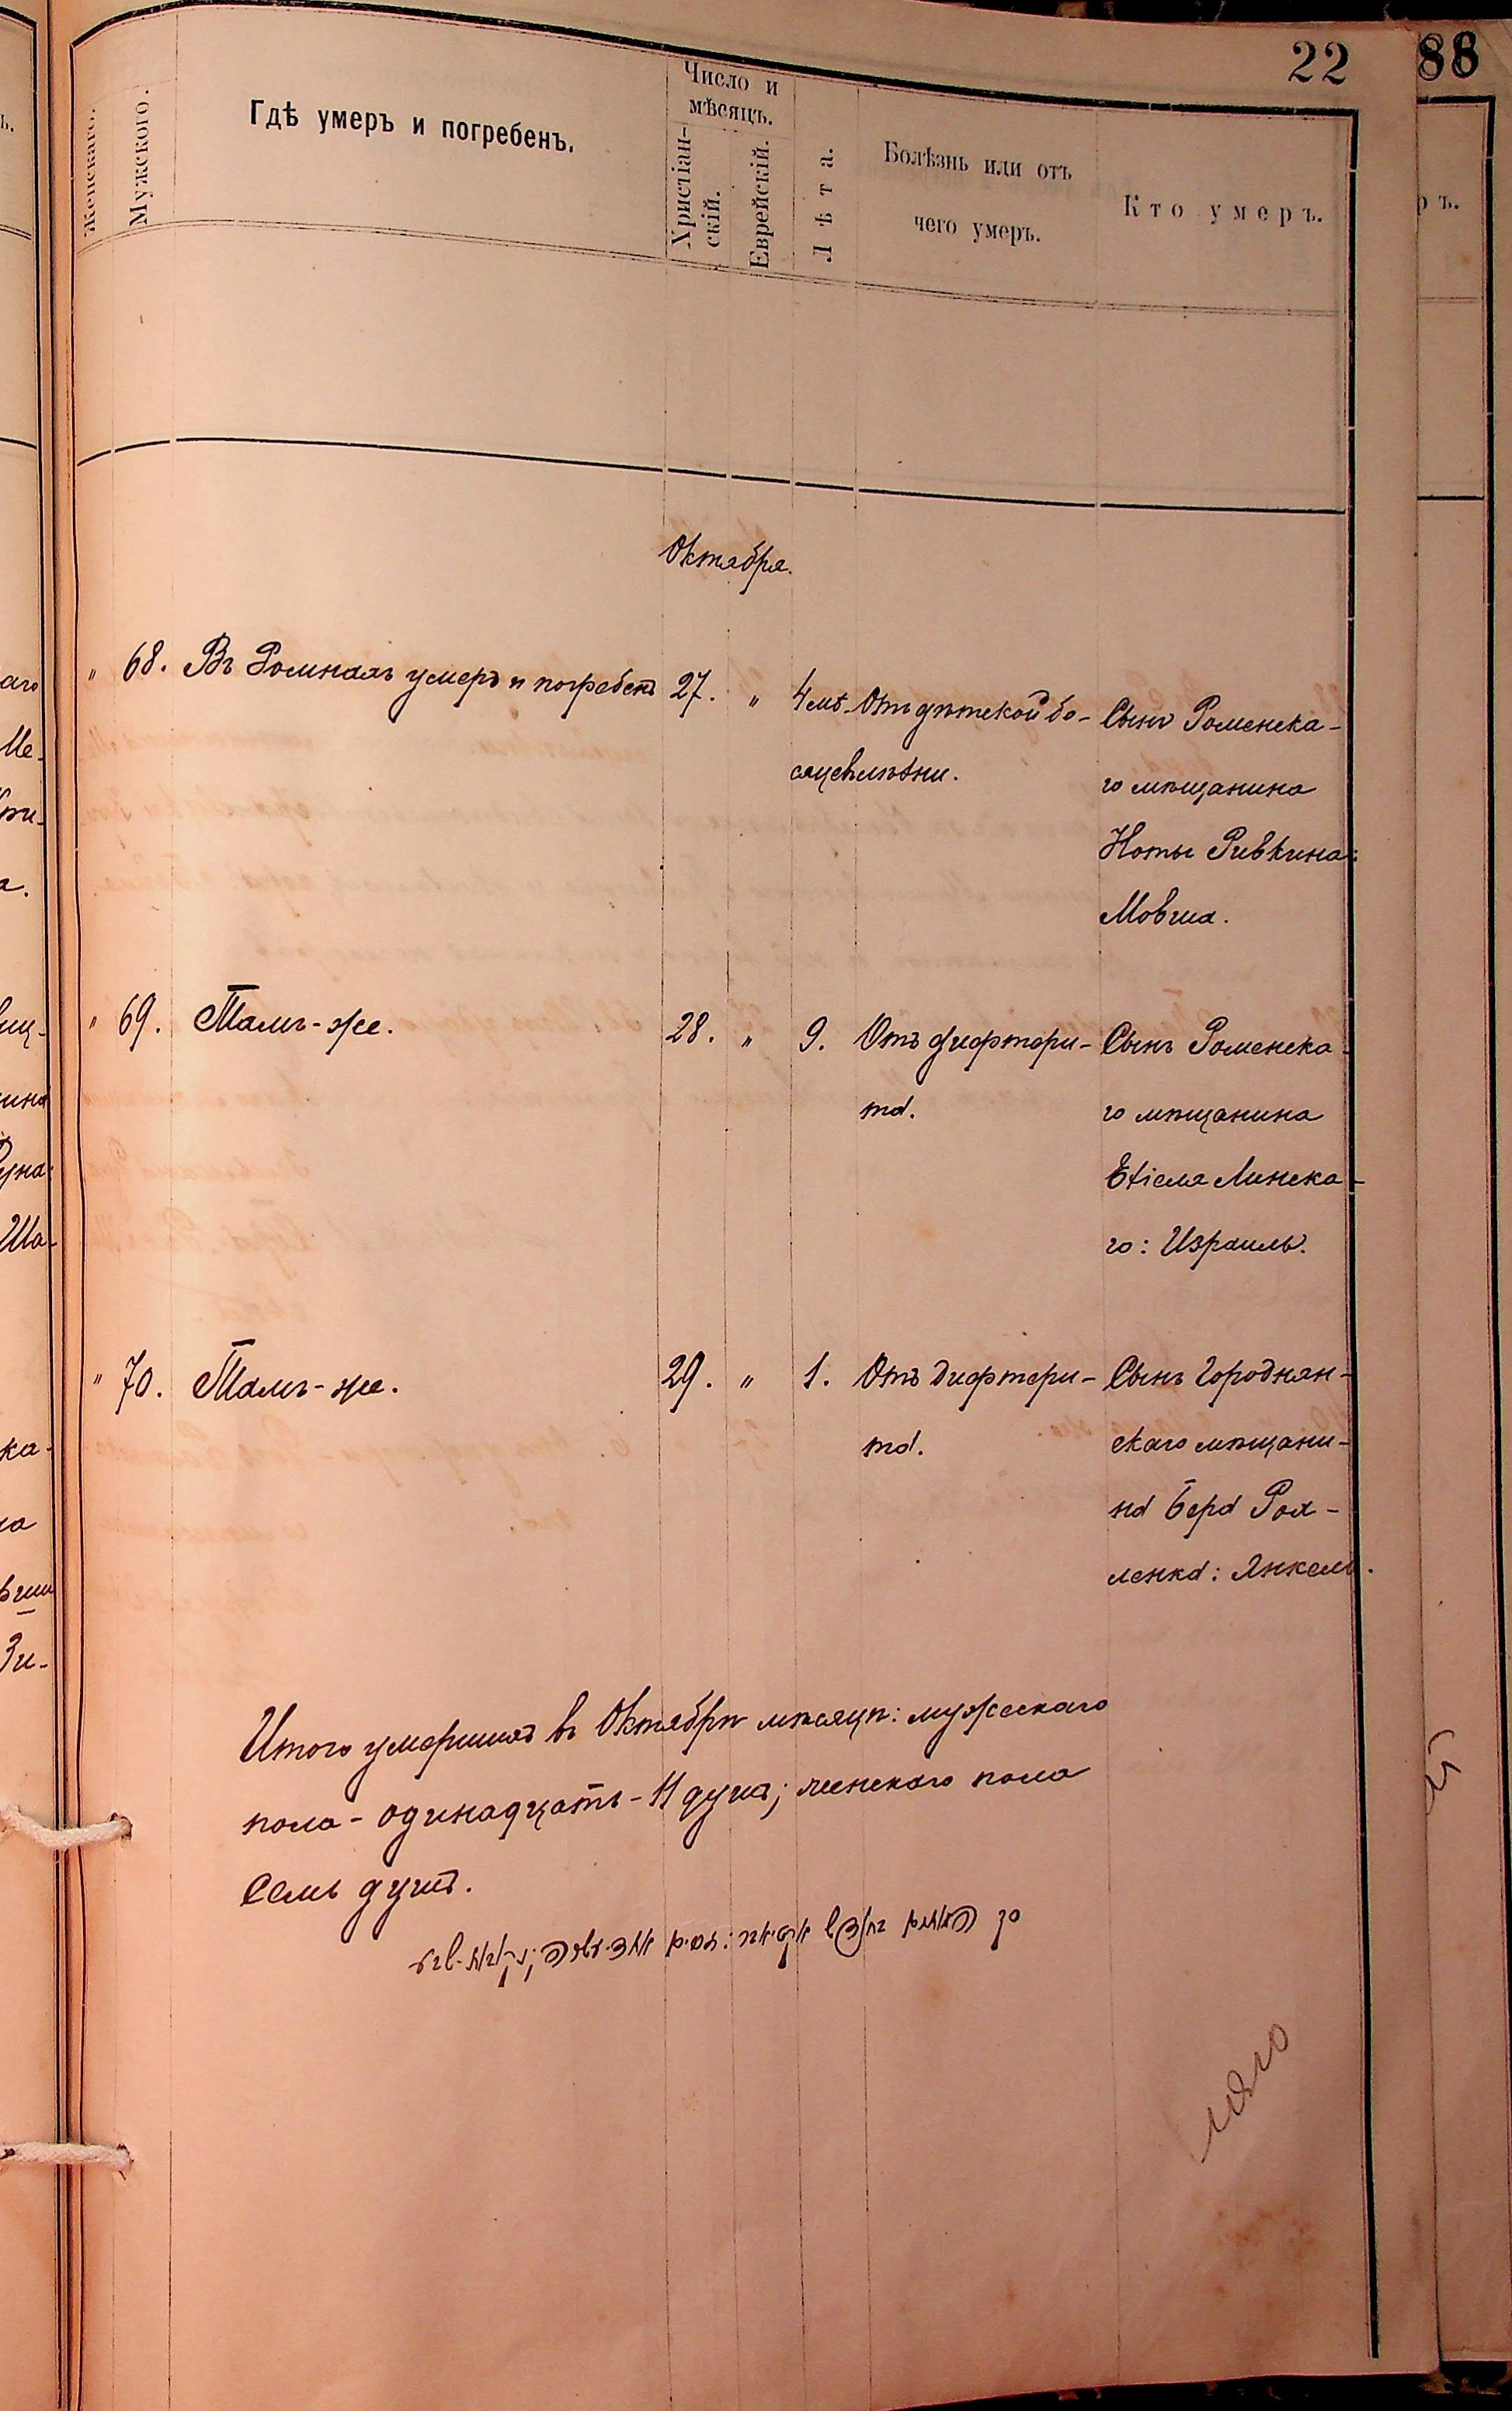 22
88
Женскаго.
Мужского.
Гдѣ умеръ и погребенъ.
Число и
мѣсяцъ.
Христіан-
скій.
Еврейскій.
Лѣта.
Болѣзнь или отъ
чего умеръ.
Кто умеръ.
Октября.
" 68. Въ Ромнахъ умеръ и погребенъ 27. " 4 мѣ- Отъ дѣтской бо- Сынъ Роменска-
сяцевъ лѣзни. го мѣщанина
Ноты Ривкина:
Мовша.
" 69. Тамъ-же. 28. " 9. Отъ дифтери- Сынъ Роменска-
та. го мѣщанина
Линска-
го: Израиль.
" 70. Тамъ-же. 29. " 1. Отъ дифтери- Сынъ Городнян-
та. скаго мѣщани-
на Бера Роя-
ленка: Янкель.
Итого умершихъ въ Октябрѣ мѣсяцѣ: мужескаго
пола - одинадцать - 11 душъ; женскаго пола
семь душъ.